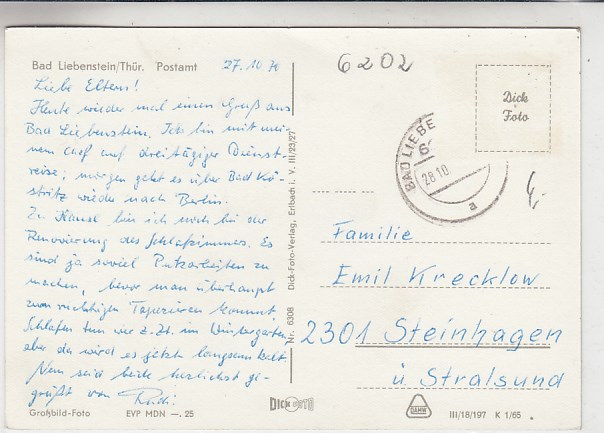 Bad Liebenstein/Thür. Postamt
27.10.70
Liebe Eltern!
Heute wieder mal einen Gruß aus
Bad Liebenstein. Ich bin mit mei-
nem Chef auf dreitägiger Dienst-
reise; morgen geht es über Bad Kö-
stritz wieder nach Berlin.
Zu Hause bin ich noch bei der
Renovierung des Schlafzimmers. Es
sind ja soviel Putzarbeiten zu
machen, bevor man überhaupt
zum richtigen Tapezieren kommt.
Schlafen tun wir z. Zt. im Wintergarten,
aber da wird es jetzt langsam kalt.
Nun seid beide herzlichst ge-
grüßt von Rudi.
Großbild-Foto EVP MDN —.25
Nr. 6308 Dick-Foto-Verlag, Erlbach i. V. III/23/27
DICK FOTO
6202
Dick
Foto
BAD LIEBE
6-
28.10
a
4,-
Familie
Emil Krecklow
2301 Steinhagen
ü Stralsund
DAMW
III/18/197 K 1/65